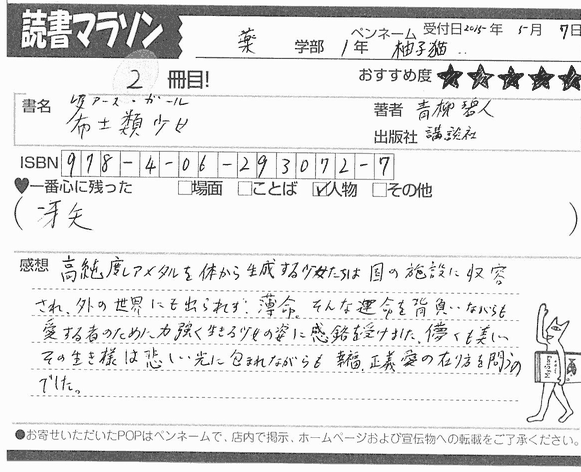 読書マラソン
受付日2015年 5月 7日
薬 学部 1年 ペンネーム 柚子猫
2 冊目!
おすすめ度 ★★★★★
書名 レアアース・ガール
希土類少女
著者 青柳碧人
出版社 講談社
ISBN 978-4-06-293072-7
♥一番心に残った □場面 □ことば ☑人物 □その他
( 冴矢 )
感想 高純度レアメタルを体から生成する少女たちは国の施設に収容
され、外の世界にも出られず、薄命。そんな運命を背負いながらも
愛する者のために力強く生きる少女の姿に感銘を受けました。儚くも美しい
その生き様は悲しい光に包まれながらも幸福、正義、愛の在り方を問うもの
でした。
●お寄せいただいたPOPはペンネームで、店内で掲示、ホームページおよび宣伝物への転載をご了承ください。